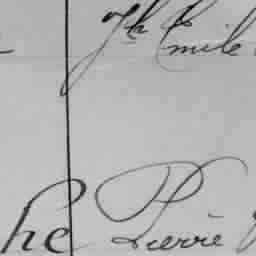 Jh Emile
he Pierre